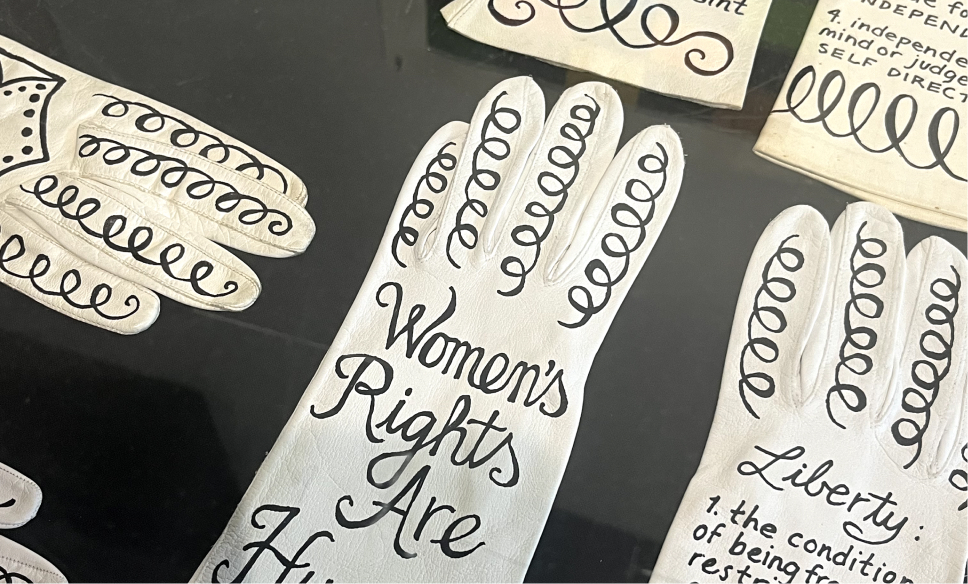 NDEPEND
4. independe
mind or judge
SELF DIRECT
Women's
Rights
Are
Hu
Liberty:
1. the condition
of being fre
restri